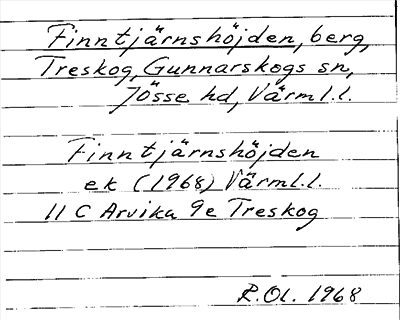 Finntjärnshöjden, berg,
Treskog, Gunnarskogs sn,
Jösse hd, Värml.l.
Finntjärnshöjden
ek (1968) Värml.l.
11 C Arvika 9e Treskog
R.Ol. 1968